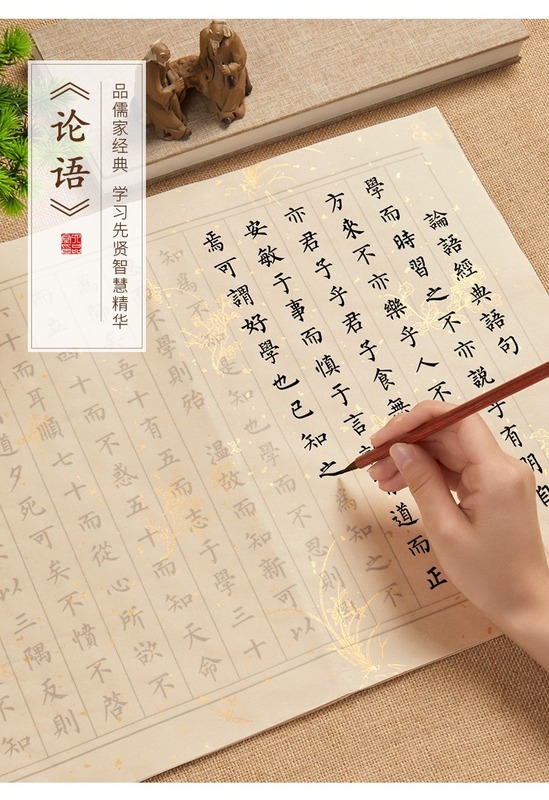 《论语》
品儒家经典 学习先贤智慧精华
論語經典語句
學而時習之不亦說乎有朋自
方來不亦樂乎人不
亦君子乎君子食無
安敏于事而慎于言
道而正
焉可謂好學也已知之為知之不
知為不是知
而不思則
不學則殆溫故而知新可以
吾十有五而志于學三十
十而不惑五十而知天命
六十而耳順七十而從心所欲不
道夕死可矣不憤不啓
以三隅反則
不知